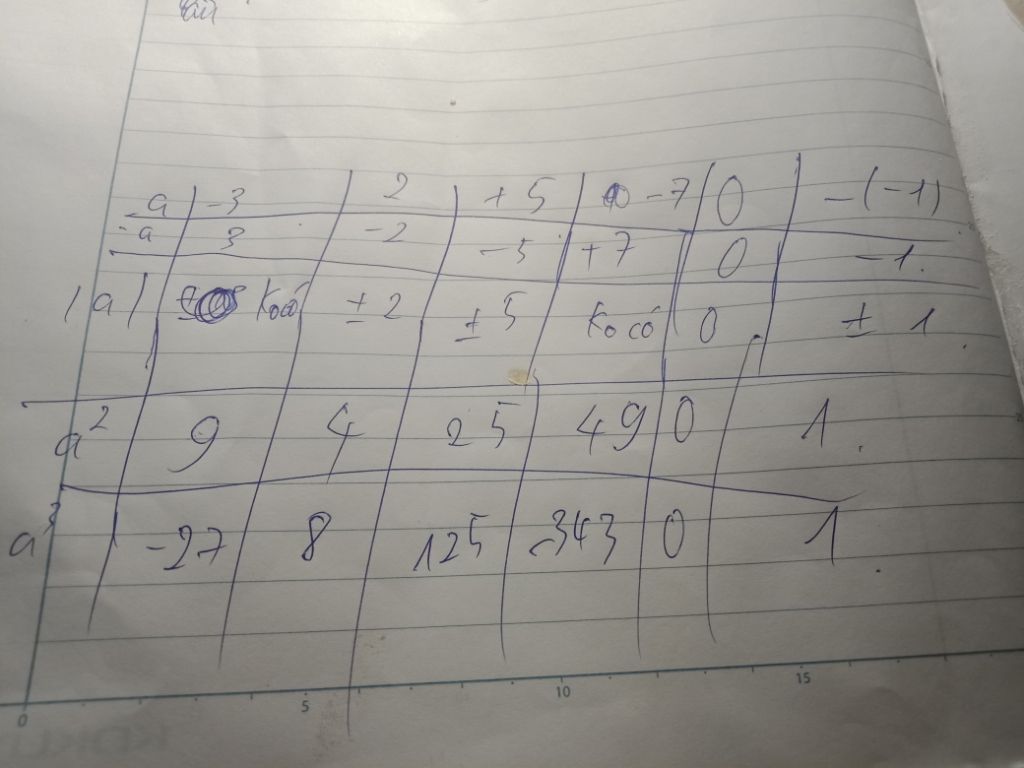 a -3 2 +5 -7 0 -(-1)
-a 3 -2 -5 +7 0 -1.
|a| Ko có ±2 ±5 Ko có 0 ± 1
a² 9 4 25 49 0 1.
a³ -27 8 125 -343 0 1
0 5 10 15